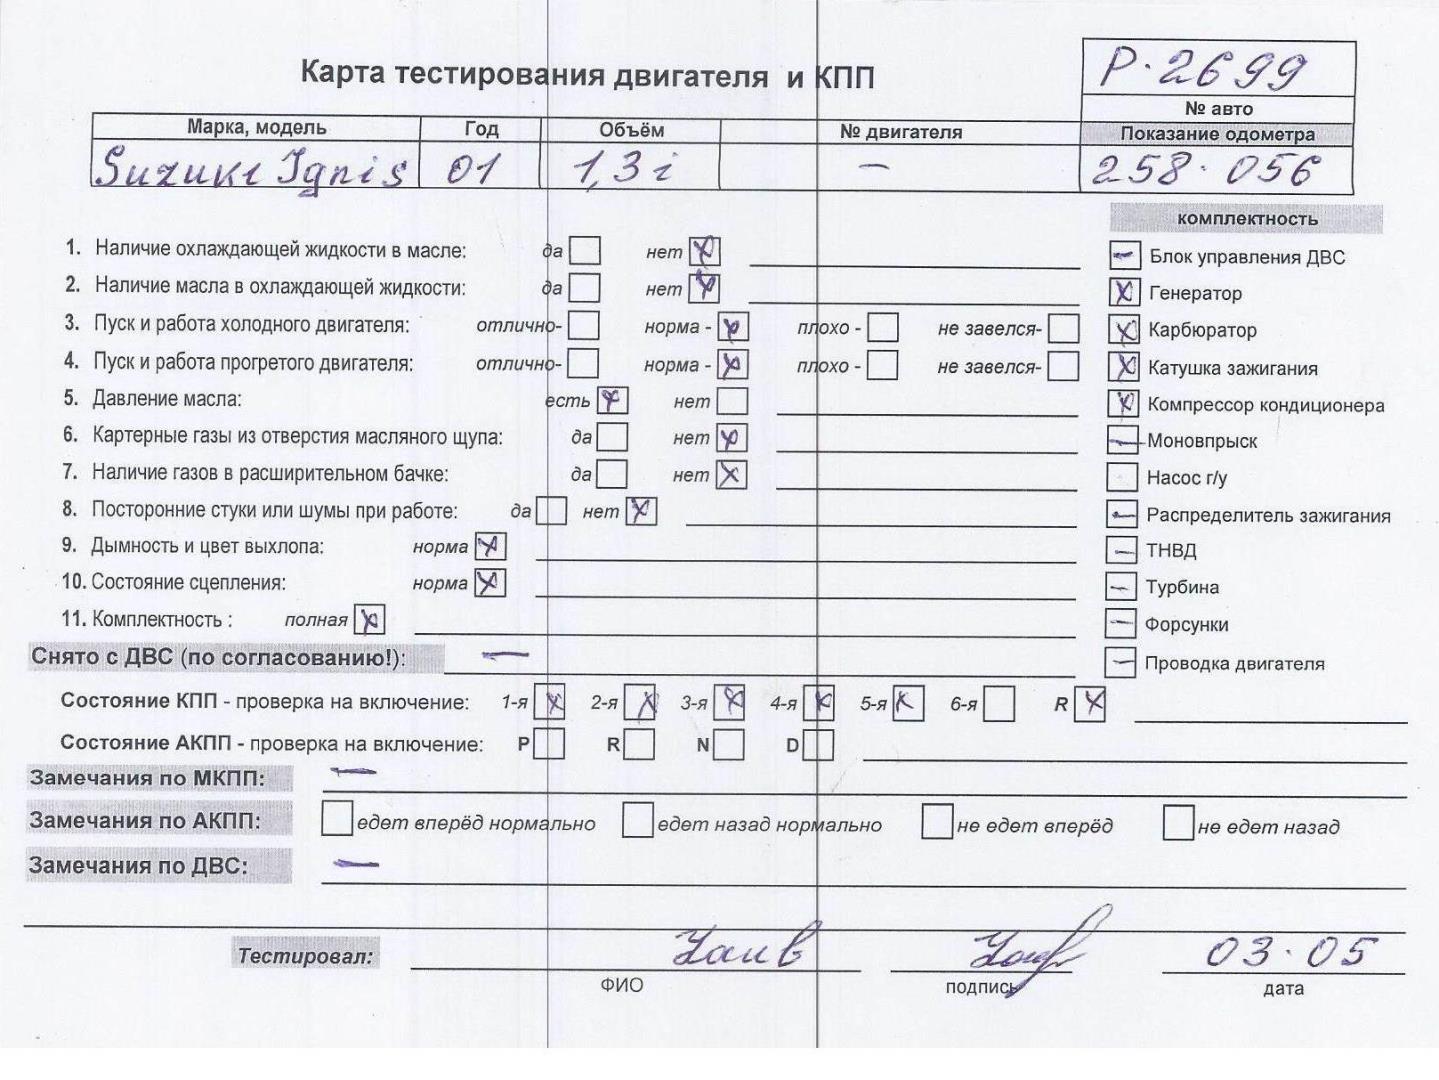 Р·2699
Карта тестирования двигателя и КПП
№ авто
Марка, модель Год Объём № двигателя Показание одометра
Suzuki Ignis 01 1,3i — 258·056
комплектность
1. Наличие охлаждающей жидкости в масле: да нет X
2. Наличие масла в охлаждающей жидкости: да нет X
3. Пуск и работа холодного двигателя: отлично- норма - X плохо - не завелся-
4. Пуск и работа прогретого двигателя: отлично- норма - X плохо - не завелся-
5. Давление масла: есть X нет
6. Картерные газы из отверстия масляного щупа: да нет X
7. Наличие газов в расширительном бачке: да нет X
8. Посторонние стуки или шумы при работе: да нет X
9. Дымность и цвет выхлопа: норма X
10. Состояние сцепления: норма X
11. Комплектность : полная X
— Блок управления ДВС
X Генератор
X Карбюратор
X Катушка зажигания
X Компрессор кондиционера
— Моновпрыск
Насос г/у
— Распределитель зажигания
— ТНВД
— Турбина
— Форсунки
— Проводка двигателя
Снято с ДВС (по согласованию!): —
Состояние КПП - проверка на включение: 1-я X 2-я X 3-я X 4-я X 5-я X 6-я R X
Состояние АКПП - проверка на включение: P R N D
Замечания по МКПП: —
Замечания по АКПП: едет вперёд нормально едет назад нормально не едет вперёд не едет назад
Замечания по ДВС: —
Тестировал: 03·05
ФИО подпись дата